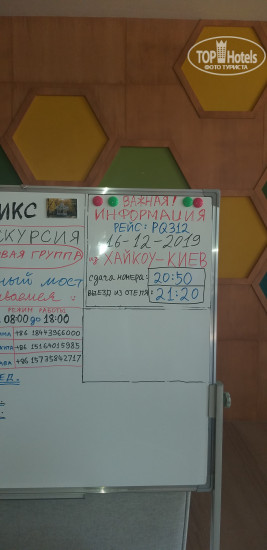 TOPHotels
ФОТО ТУРИСТА
ИКС
СКУРСИЯ
ВАЯ ГРУППА
НЫЙ МОСТ
РЕЖИМ РАБОТЫ
08:00 до 18:00
+86 18443966000
+86 15164015985
+86 15735842717
ВАЖНАЯ!
ИНФОРМАЦИЯ
РЕЙС: PQ312
16-12-2019
ХАЙКОУ-КИЕВ
сдача номера: 20:50
ВЫЕЗД ИЗ ОТЕЛЯ: 21:20